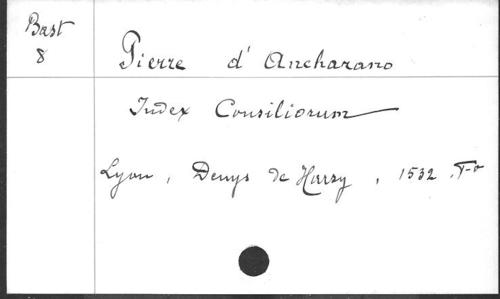 Bast
8
Pierre d' Ancharano
Index Consiliorum
Lyon, Denys de Harsy, 1532. Fo